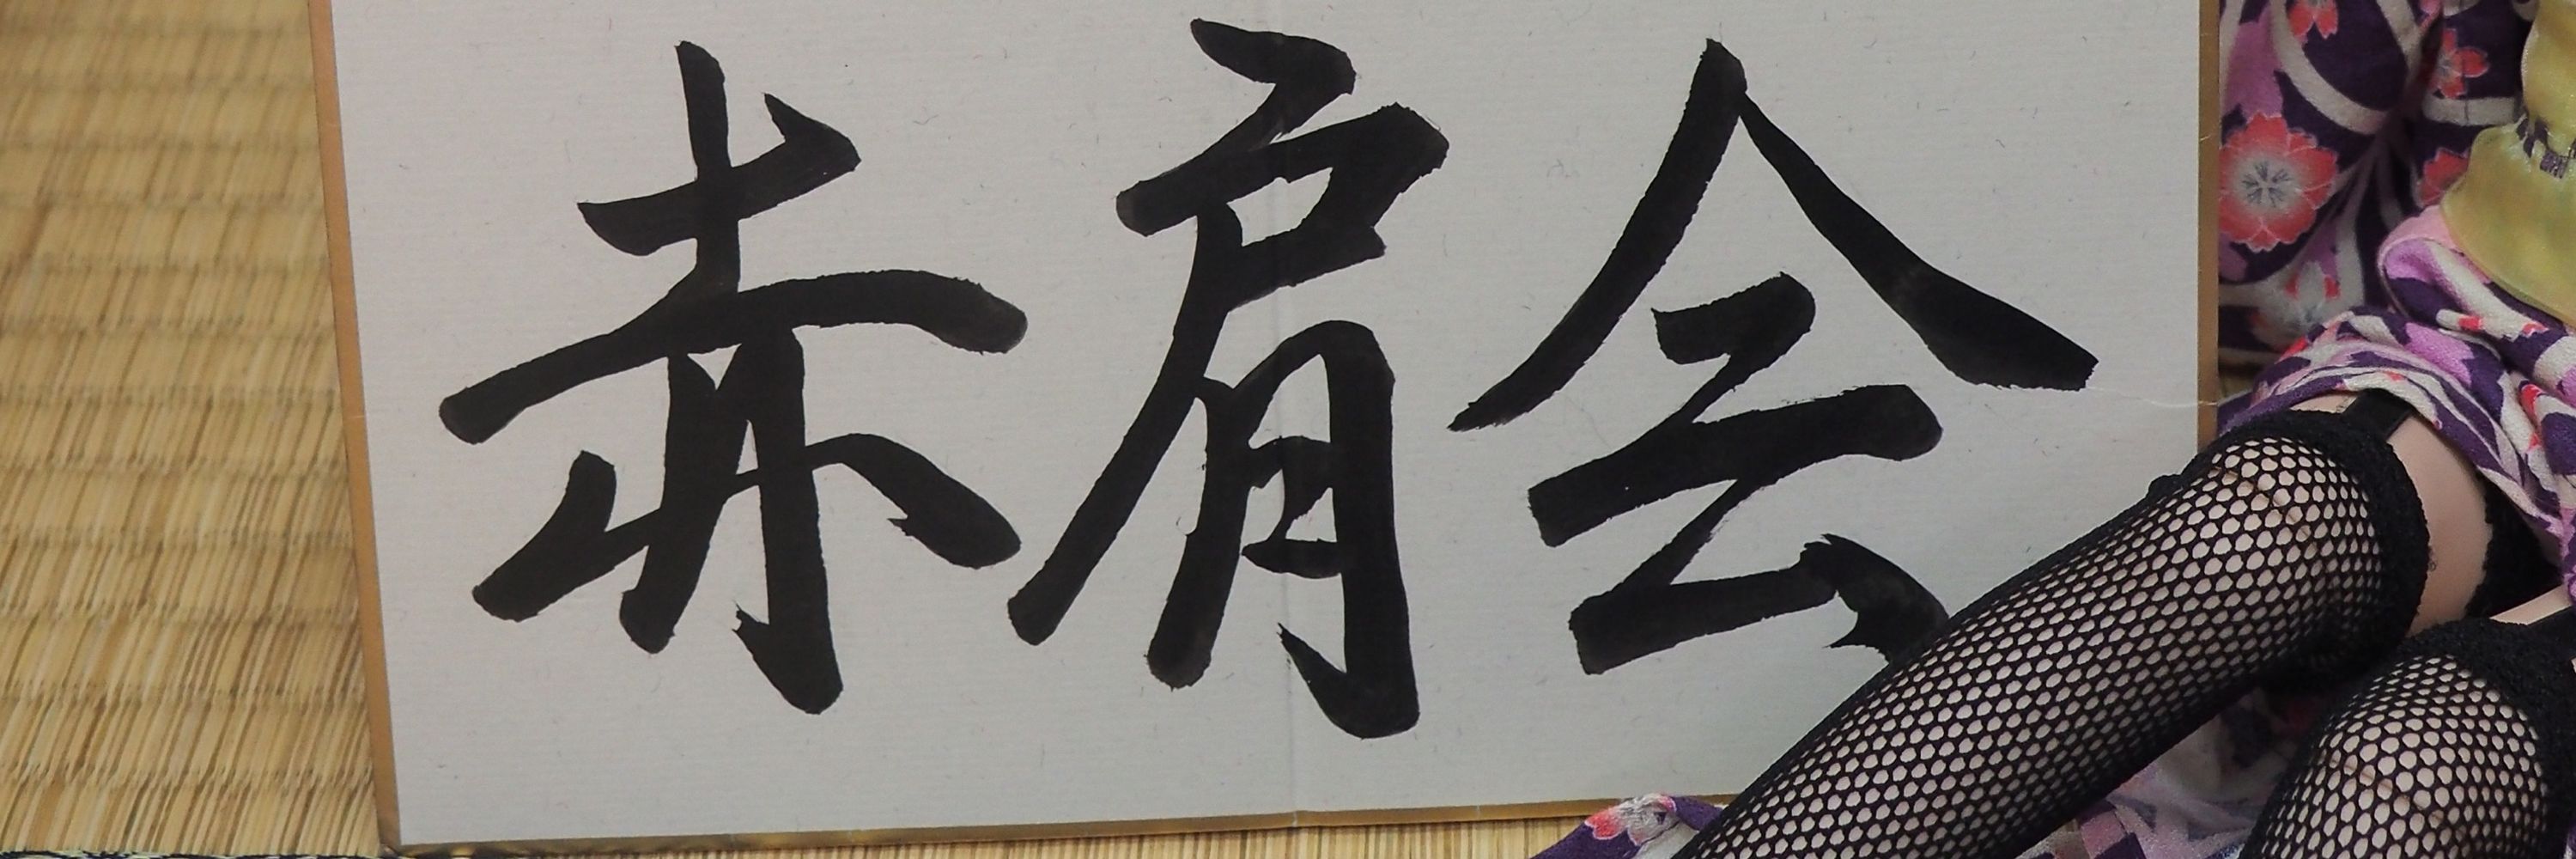 赤肩会